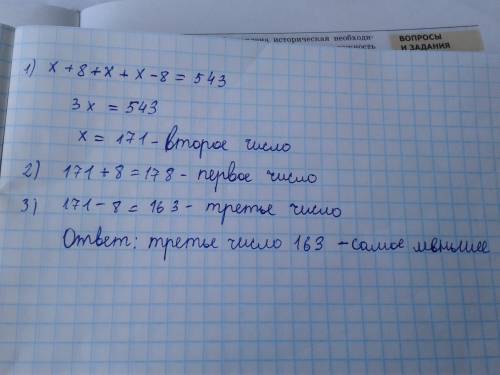 ления историческая необходи-
ВОПРОСЫ
И ЗАДАНИЯ
1) x + 8 + x + x - 8 = 543
3x = 543
x = 171 - второе число
2) 171 + 8 = 178 - первое число
3) 171 - 8 = 163 - третье число
Ответ: третье число 163 - самое меньшее